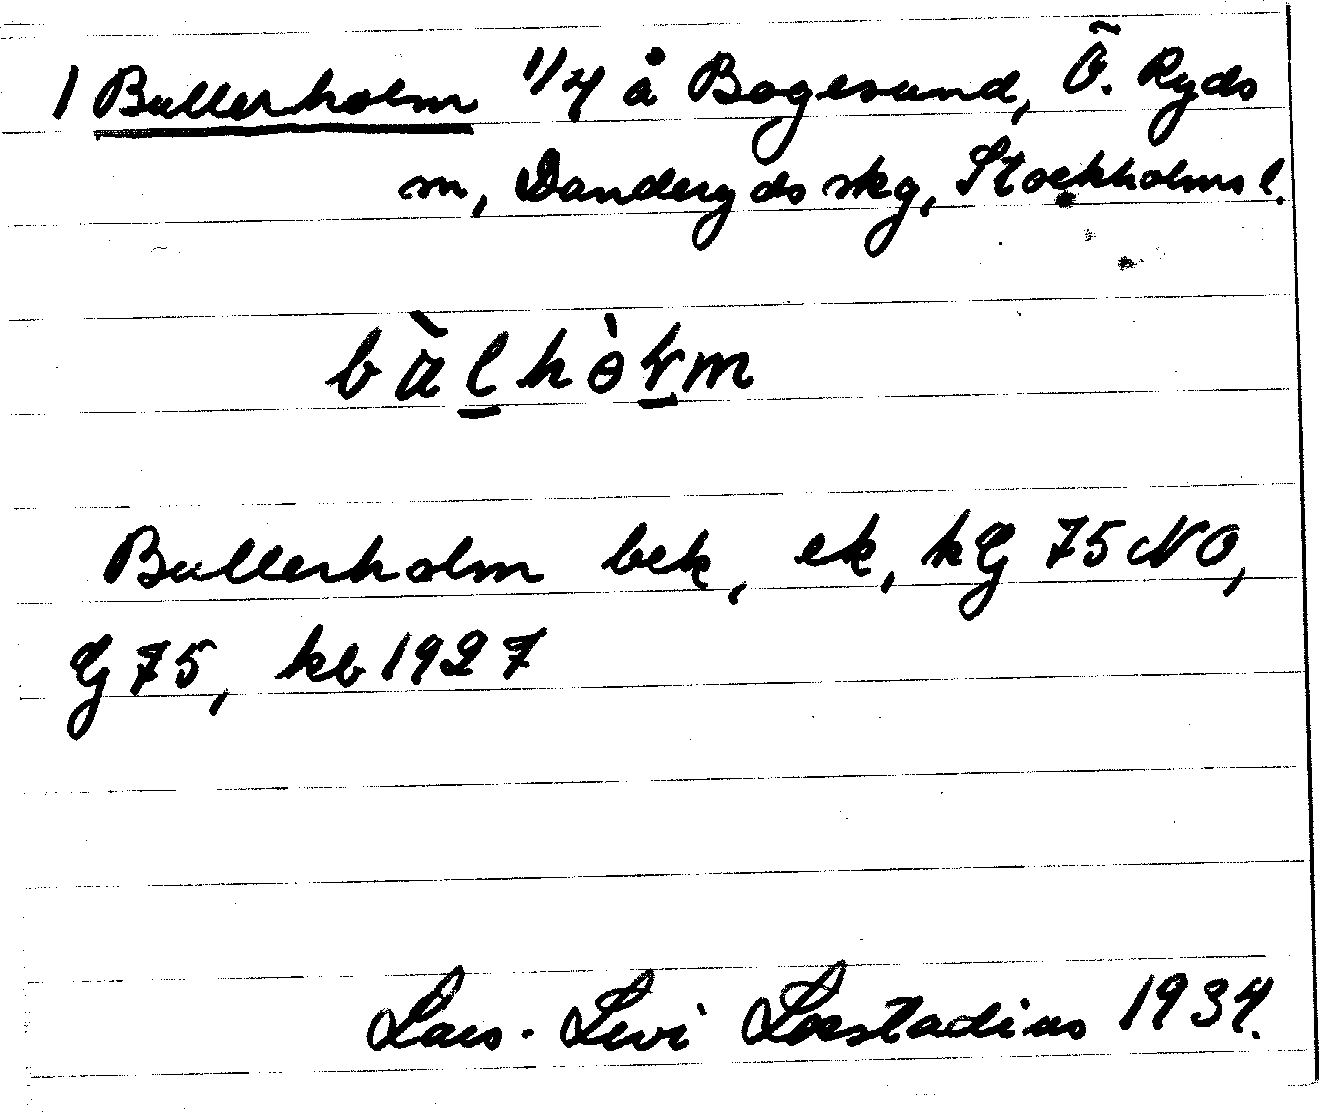 1 Bullerholm 1/4 å Bogesund, Ö. Ryds
sn, Danderyds skg, Stockholms l.
bàlhòłm
Bullerholm bek, ek, kG 75 NO,
G 75, kb 1927
Lars-Levi Læstadius 1934.